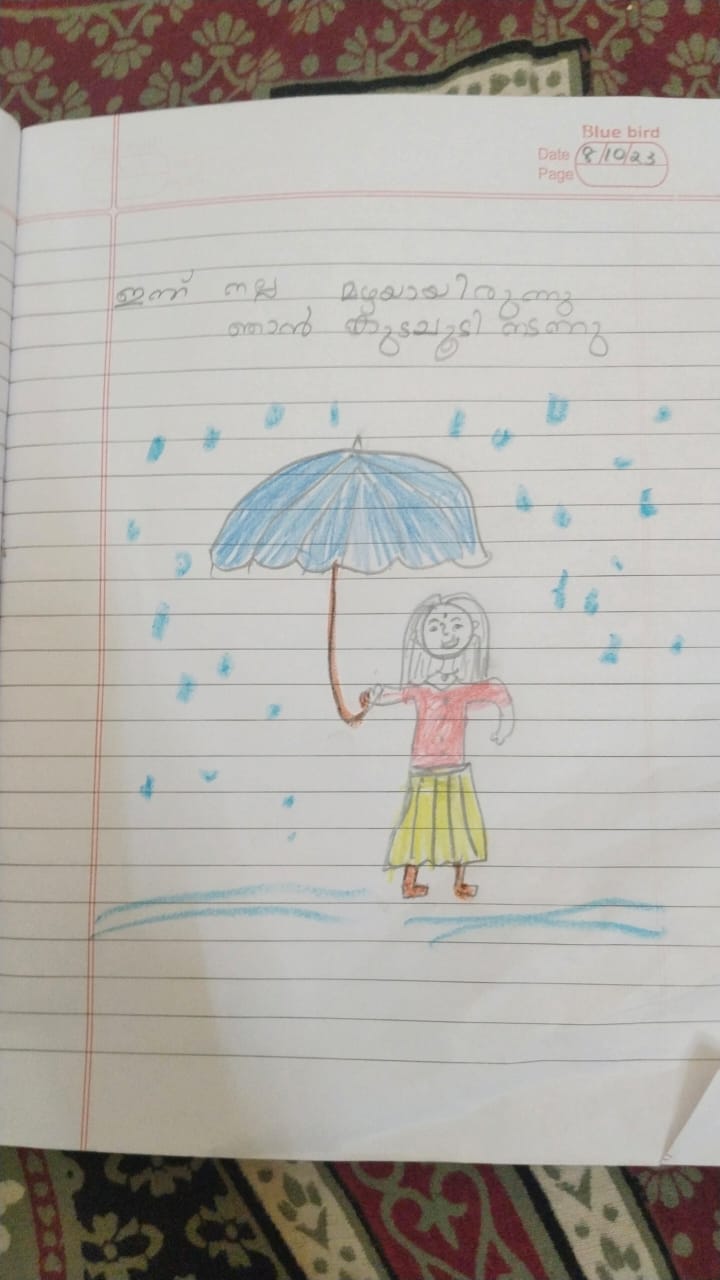 Blue bird
Date 8/10/23
Page
ഇന്ന് നല്ല മഴയായിരുന്നു
ഞാൻ കുടചൂടി നടന്നു